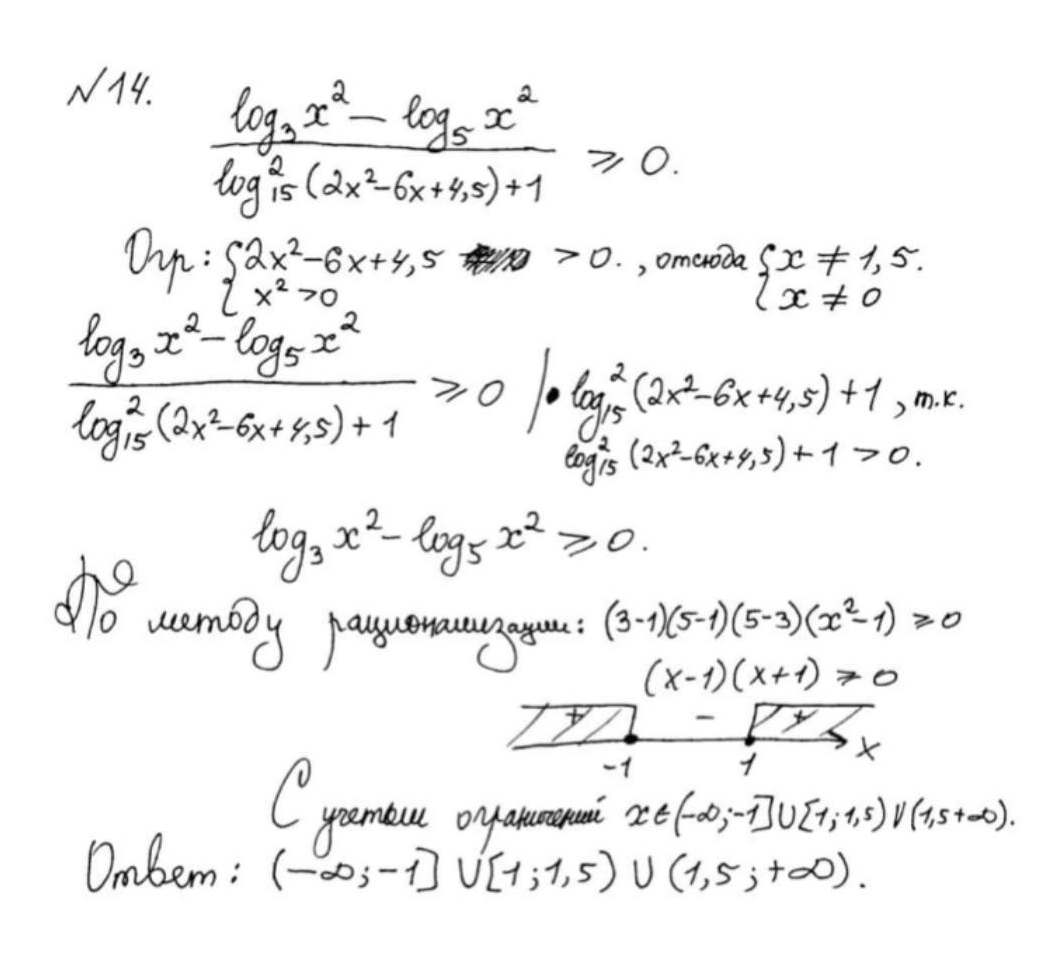 №14.
log₃x² − log₅x²
log²₁₅(2x²−6x+4,5)+1 ⩾ 0.
Огр: { 2x²−6x+4,5 > 0. , отсюда { x ≠ 1,5.
x² > 0 x ≠ 0
log₃x² − log₅x²
log²₁₅(2x²−6x+4,5)+1 ⩾ 0 | • log²₁₅(2x²−6x+4,5)+1, т.к.
log²₁₅(2x²−6x+4,5)+1 > 0.
log₃x² − log₅x² ⩾ 0.
По методу рационализации: (3-1)(5-1)(5-3)(x²-1) ⩾ 0
(x-1)(x+1) ⩾ 0
+ − +
-1 1 x
С учетом ограничений x ∈ (-∞;-1]∪[1;1,5)∪(1,5+∞).
Ответ: (−∞;−1] ∪ [1;1,5) ∪ (1,5;+∞).